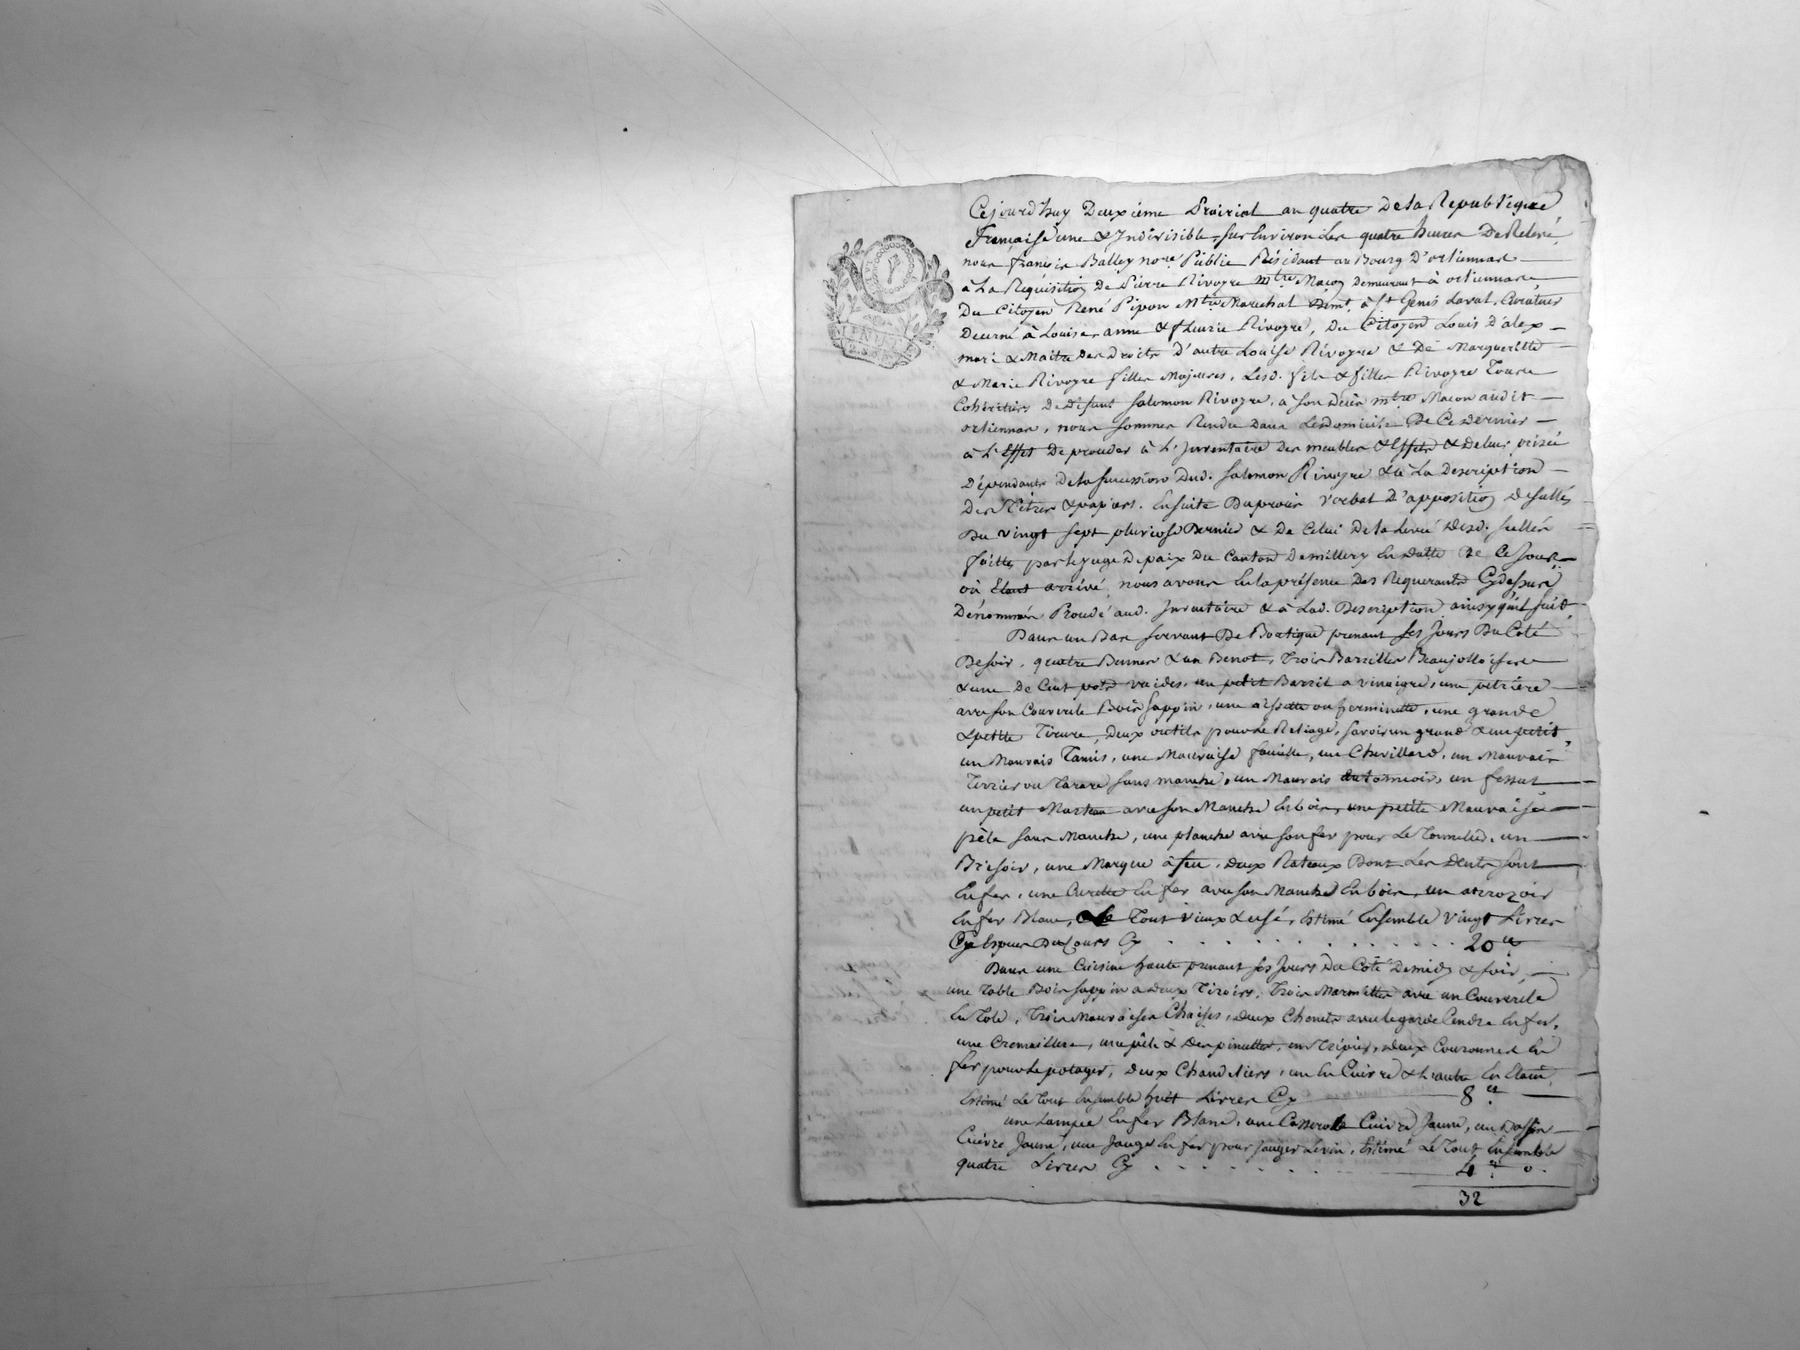 Cejourd'huy Deuxième Prairial an quatre De la Republique
Française une & Indivisible, sur Environ les quatre heures De Relevé
nous françois Balley nore Public Résidant au Bourg D'orliennas
à La Requisition De Pierre Rivoyre mtre Maçon Demeurant à orliennas,
Du Citoyen René Pipon Mtre Marechal Demt à St Genis Laval, Curateur
Decerné à Louise, anne & fleurie Rivoyre, Du Citoyen Louis D'alex
mari & Maitre Des Droits D'autre Louise Rivoyre & De Margueritte
& Marie Rivoyre filles Majeures, Lesd. fils & filles Rivoyre Tous
Cohéritiers De Défunt Salomon Rivoyre, a son Decès mtre Maçon audit
orliennas, nous sommes Rendu Dans Le Domicile De Ce Dernier
à L'Effet De proceder à L'Inventaire Des meubles & Effets
Dépendants De la Succession Dud. Salomon Rivoyre & à La Description
Des Titres & papiers. Ensuite Du procès verbal D'apposition De scellés
Du vingt sept pluviose Dernier & De Celui De la Levée Desd. scellés
faittes par le juge De paix Du Canton De millery En Datte De Ce Jour
où Etant arrivé, nous avons En la présence Des Requerants Cy dessus
Dénommés Procédé aud. Inventaire & à Lad. Description ainsy qu'il suit
Dans un Bas servant De Boutique prenant ses Jours Du Coté
De soir, quatre Bennes & un Benot, Trois Barrilles Beaujolloises
& une De Cent pots vuides, un petit Barril a vinaigre, une pétrière
avec son Couvercle Bois sappin, une aissette ou herminette, une grande
& petitte Tirure, Deux outils pour le Reliage, savoir un grand & un petit
un Mauvais Tamis, une Mauvaise faucille, un Chevillard, un Mauvais
Terrier ou Tarare sans manche, un Mauvais, un fessut
un petit Marteau avec son Manche En bois, une petite Mauvaise
pèle sans Manche, une planche avec son fer pour Le, un
Brisoir, une Marque à feu, Deux Rateaux Dont Les Dents sont
En fer, une Curette En fer avec son Manche En bois, un arrozoir
En fer Blanc, Le Tout vieux & usé, Estimé Ensemble vingt Livres
Espece Du Cours Cy . . . . . . . . . . . . 20 ll
Dans une Cuisine haute prenant ses Jours Du Coté De midy & soir,
une Table Bois sappin a Deux Tiroirs, Trois Marmittes avec un Couvercle
En Tole, Trois Mauvaises Chaises, Deux Chenets avec le garde Cendre En fer,
une Cremaillere, une pêle & Des pinsettes, un Trépier, Deux Couronnes En
fer pour le potager, Deux Chandeliers, un En Cuivre & L'autre En Etain,
Estimé Le Tout Ensemble huit Livres Cy 8 ll
une Lampe En fer Blanc, une Casserole Cuivre Jaune, un Bassin
Cuivre Jaune, une Jauge En fer pour jauger Le vin, Estimé Le Tout Ensemble
quatre Livres Cy . . . . . . . . 4 ll
32